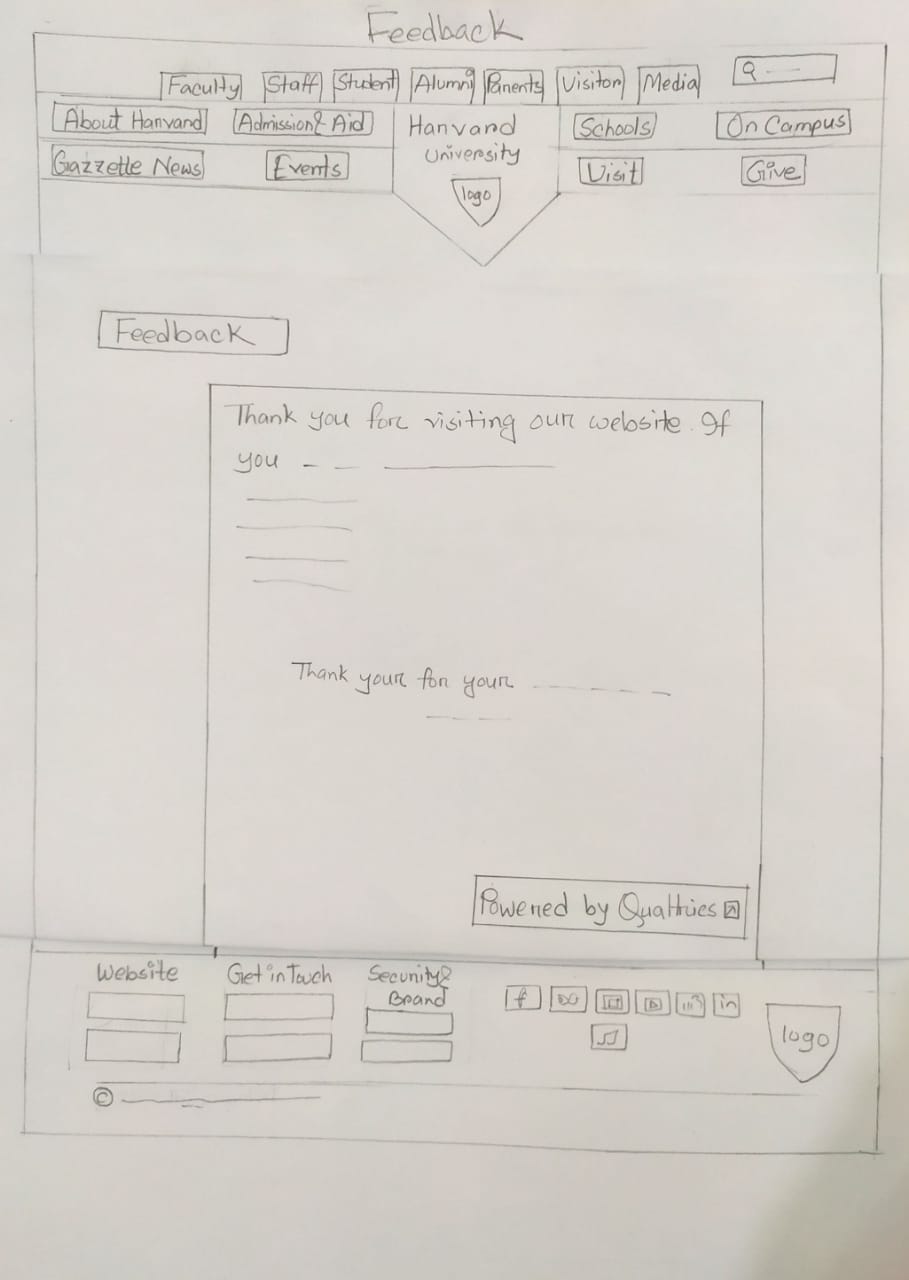 Feedback
Faculty Staff Student Alumni Parents Visitor Media
About Harvard Admission & Aid Harvard Schools On Campus
University
Gazzette News Events Visit Give
logo
Feedback
Thank you for visiting our website. If
you
Thank your for your
Powered by Qualtrics
Website Get in Touch Security &
Brand
f in
logo
©